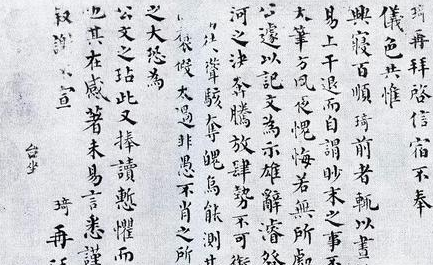 琦再拜啓信宿不奉
儀色共惟
興寢百順琦前者輒以晝
易上干退而自謂眇末之事不
大筆方夙夜愧悔若無所處
公遽以記文為示雄辭濬發
河之決奔騰放肆勢不可
聳駭奪魄烏能測其
褒假太過非愚不肖之所
之大恐為
公文之玷此又捧讀慙懼而
也其在感著未易言悉謹
敘謝不宣
琦再
台坐